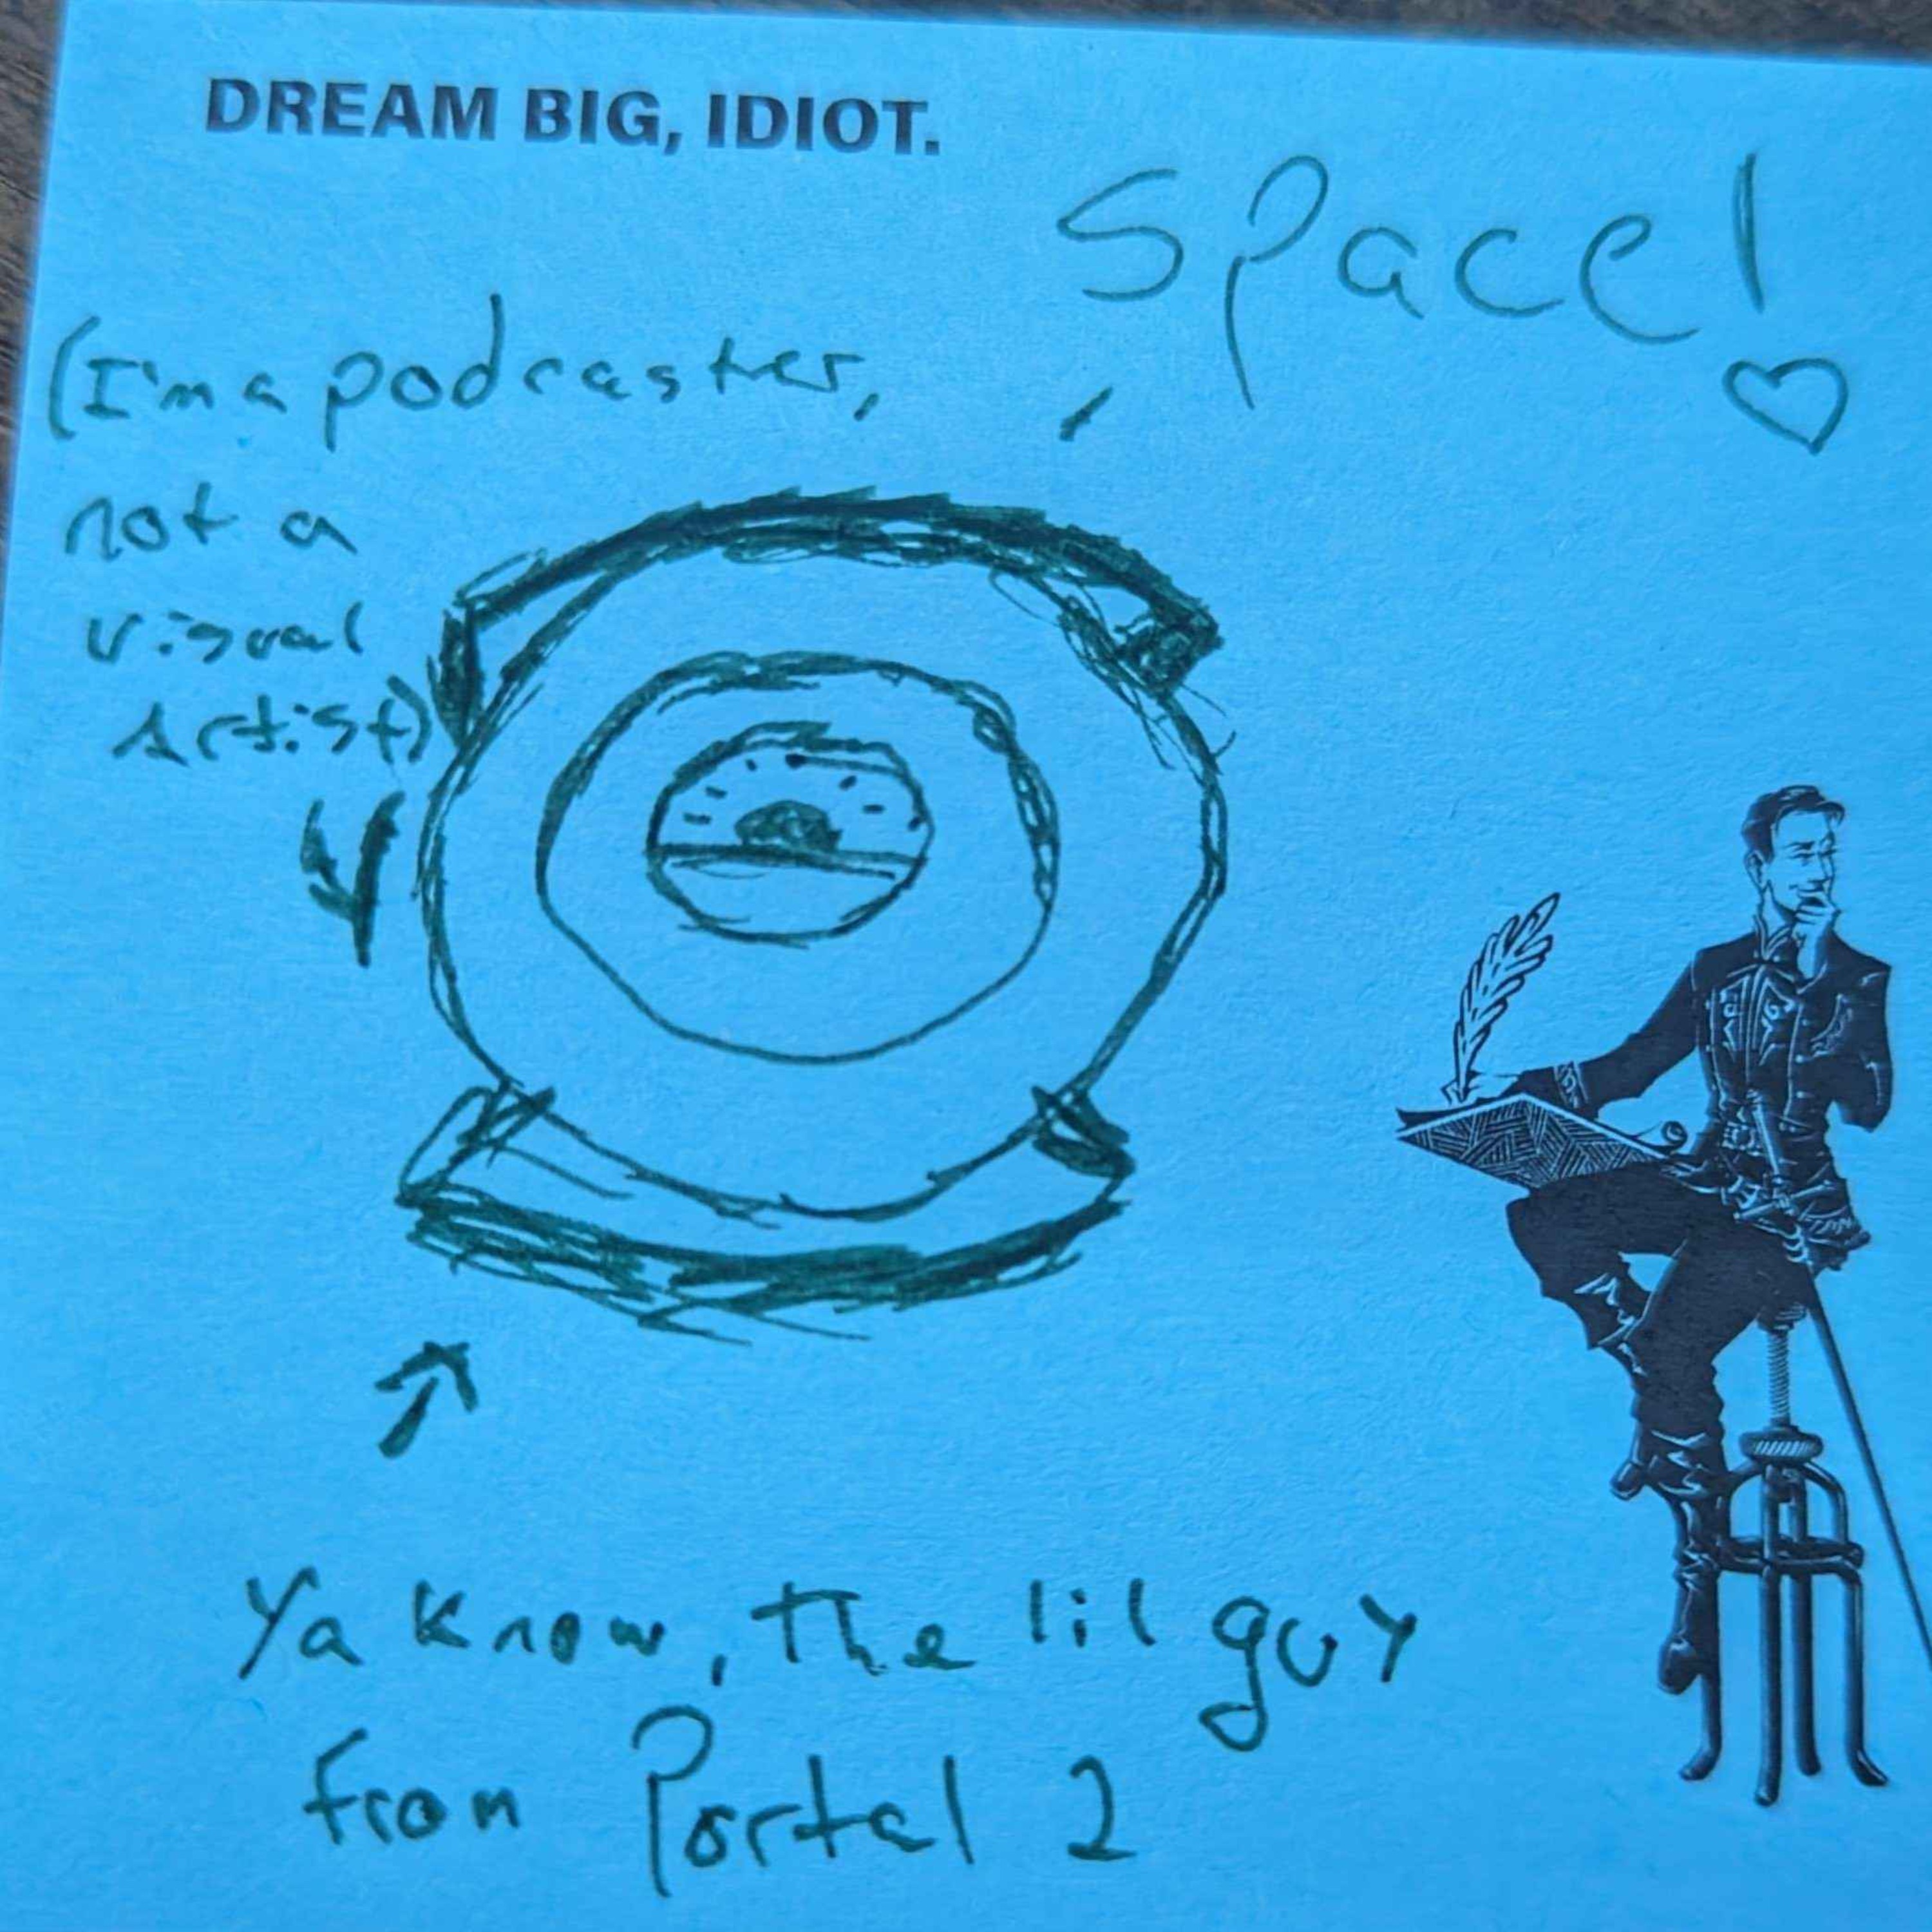 DREAM BIG, IDIOT.
Space!
(I'm a podcaster,
not a
visual
Artist)
Ya know, the lil guy
from Portal 2